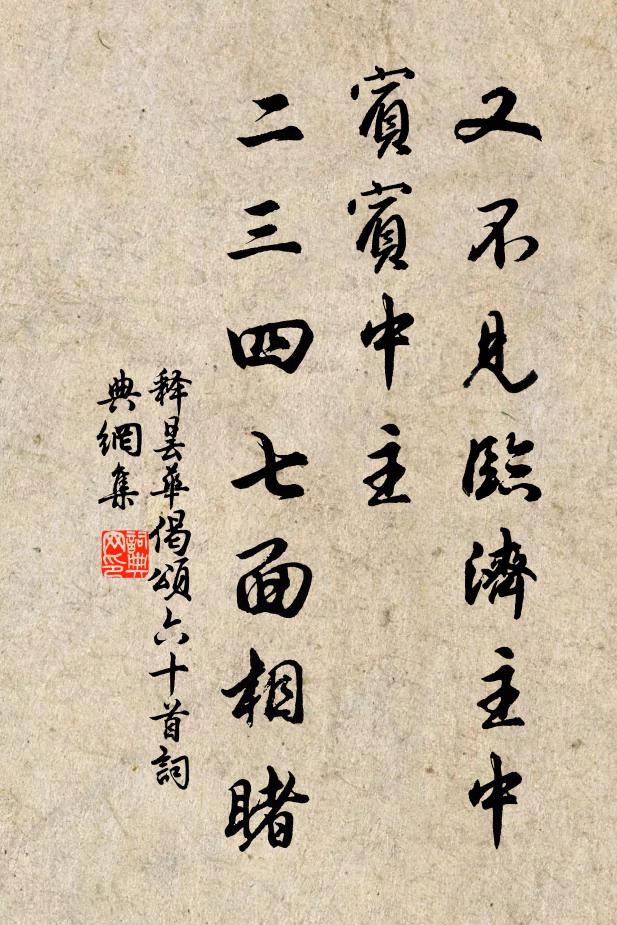 又不見臨濟主中
賓賓中主
二三四七面相睹
释曇華偈頌六十首詞
典網集
詞典
网印